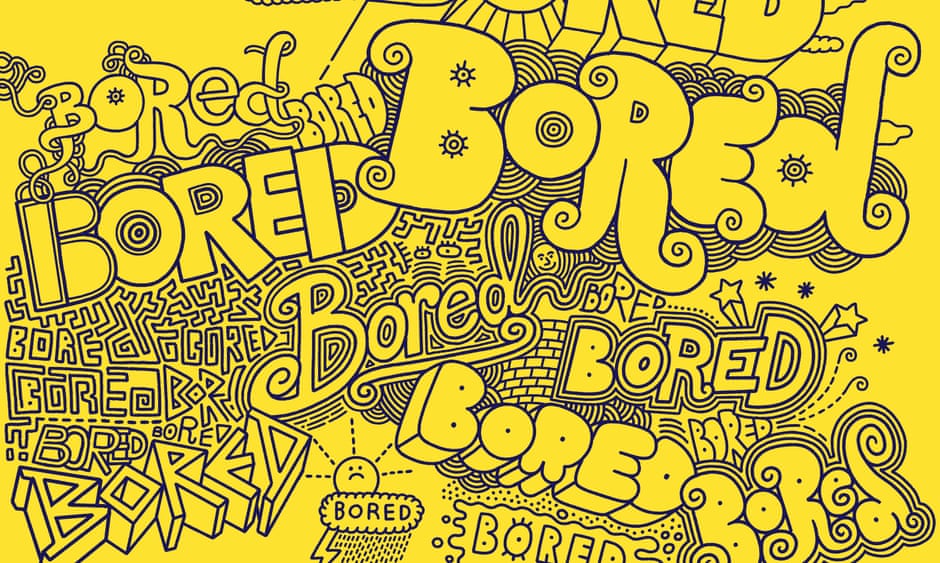 BORED
BoReD
BORed
BORED
BORED
Bored
BORED
BORED
BORED
BORED
BORED
BORED
BORED
BORED
BoRed
BORED
BORED
BORED